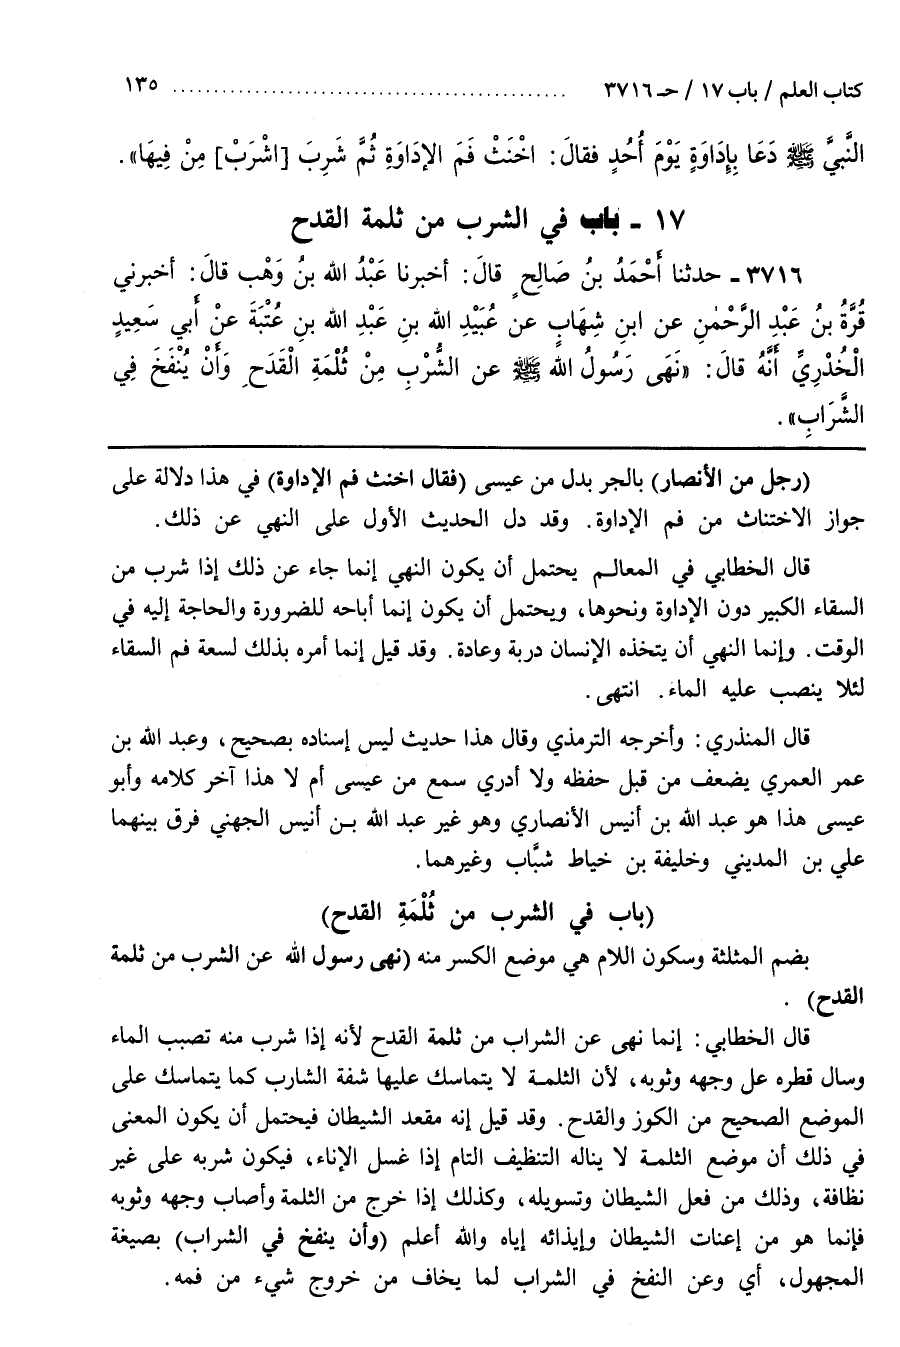 كتاب العلم / باب ١٧ / حـ ٣٧١٦ ................................................ ١٣٥
النَّبيَّ ﷺ دَعَا بِإِدَاوَةٍ يَوْمَ أُحُدٍ فقالَ: اخْنَثْ فَمَ الإدَاوَةِ ثُمَّ شَرِبَ [اشْرَبْ] مِنْ فِيهَا».
١٧ ـ باب في الشرب من ثلمة القدح
٣٧١٦ ـ حدثنا أَحْمَدُ بنُ صَالِحٍ قالَ: أخبرنا عَبْدُ الله بنُ وَهْب قالَ: أخبرني
قُرَّةُ بنُ عَبْدِ الرَّحْمٰنِ عن ابنِ شِهَابٍ عن عُبَيْدِ الله بنِ عَبْدِ الله بنِ عُتْبَةَ عنْ أَبي سَعِيدٍ
الْخُدْرِيِّ أَنَّهُ قالَ: «نَهَى رَسُولُ الله ﷺ عن الشُّرْبِ مِنْ ثُلْمَةِ الْقَدَحِ وَأَنْ يُنْفَخَ فِي
الشَّرَابِ».
(رجل من الأنصار) بالجر بدل من عيسى (فقال اخنث فم الإداوة) في هذا دلالة على
جواز الاختناث من فم الإداوة. وقد دل الحديث الأول على النهي عن ذلك.
قال الخطابي في المعالم يحتمل أن يكون النهي إنما جاء عن ذلك إذا شرب من
السقاء الكبير دون الإداوة ونحوها، ويحتمل أن يكون إنما أباحه للضرورة والحاجة إليه في
الوقت. وإنما النهي أن يتخذه الإنسان دربة وعادة. وقد قيل إنما أمره بذلك لسعة فم السقاء
لئلا ينصب عليه الماء. انتهى.
قال المنذري: وأخرجه الترمذي وقال هذا حديث ليس إسناده بصحيح، وعبد الله بن
عمر العمري يضعف من قبل حفظه ولا أدري سمع من عيسى أم لا هذا آخر كلامه وأبو
عيسى هذا هو عبد الله بن أنيس الأنصاري وهو غير عبد الله بـن أنيس الجهني فرق بينهما
علي بن المديني وخليفة بن خياط شبَّاب وغيرهما.
(باب في الشرب من ثُلْمَةِ القدح)
بضم المثلثة وسكون اللام هي موضع الكسر منه (نهى رسول الله عن الشرب من ثلمة
القدح) .
قال الخطابي: إنما نهى عن الشراب من ثلمة القدح لأنه إذا شرب منه تصبب الماء
وسال قطره عل وجهه وثوبه، لأن الثلمـة لا يتماسك عليها شفة الشارب كما يتماسك على
الموضع الصحيح من الكوز والقدح. وقد قيل إنه مقعد الشيطان فيحتمل أن يكون المعنى
في ذلك أن موضع الثلمـة لا يناله التنظيف التام إذا غسل الإناء، فيكون شربه على غير
نظافة، وذلك من فعل الشيطان وتسويله، وكذلك إذا خرج من الثلمة وأصاب وجهه وثوبه
فإنما هو من إعنات الشيطان وإيذائه إياه والله أعلم (وأن ينفخ في الشراب) بصيغة
المجهول، أي وعن النفخ في الشراب لما يخاف من خروج شيء من فمه.